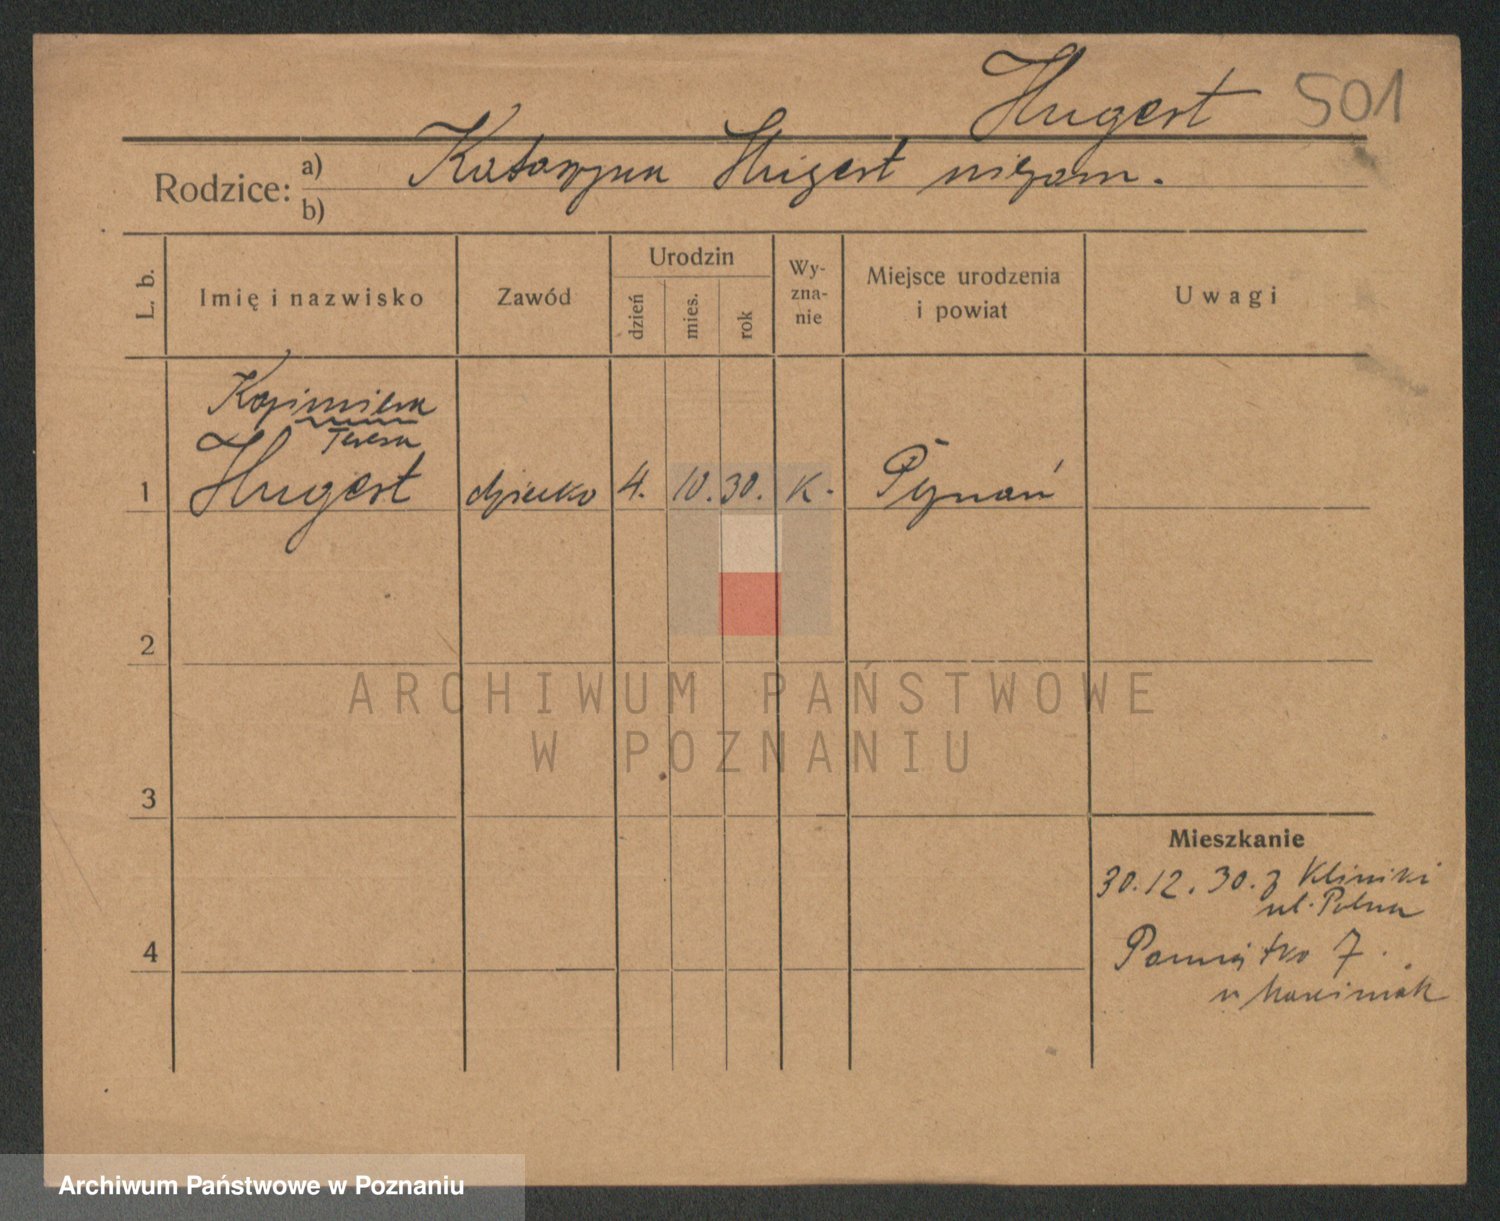 Hugert 501
Rodzice: a) Katarzyna Hugert niezam.
b)
L. b.
Imię i nazwisko
Zawód
Urodzin
dzień
mies.
rok
Wy-
zna-
nie
Miejsce urodzenia
i powiat
Uwagi
Kazimiera
Teresa
1 Hugert dziecko 4. 10. 30. K. Poznań
2
ARCHIWUM PAŃSTWOWE
W POZNANIU
3
Mieszkanie
30.12.30. z Kliniki
ul. Polna
4
7.
u Marciniak
Archiwum Państwowe w Poznaniu